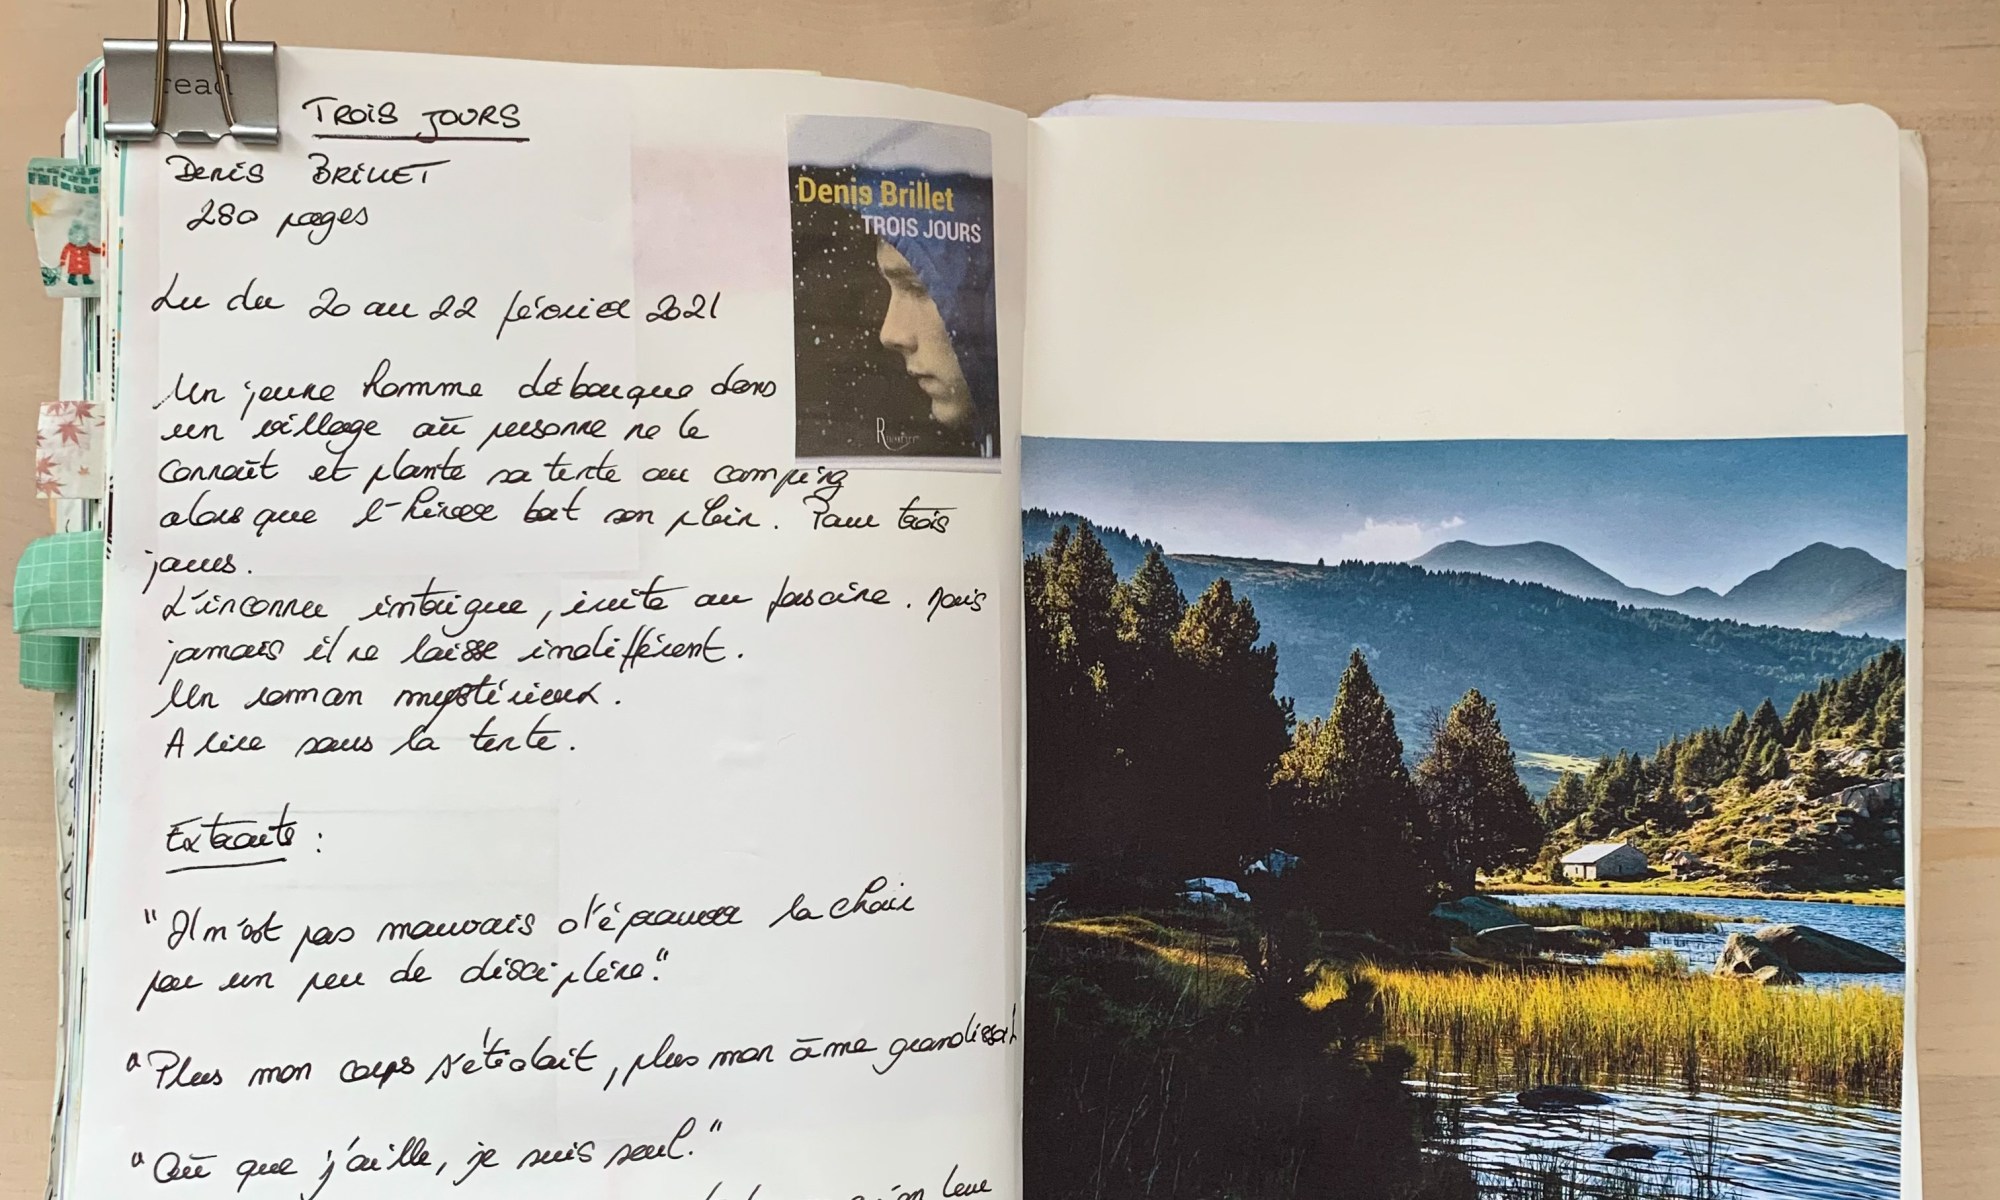 read
TROIS JOURS
Denis BRILLET
280 pages
Lu du 20 au 22 février 2021
Un jeune homme débarque dans
un village où personne ne le
connaît et plante sa tente au camping
alors que l'hiver bat son plein. Pour trois
jours.
L'inconnu intrigue, irrite ou fascine. Mais
jamais il ne laisse indifférent.
Un roman mystérieux.
A lire sous la tente.
Extraits :
"Il n'est pas mauvais d'éprouver la chair
par un peu de discipline."
"Plus mon corps s'étiolait, plus mon âme grandissait
"Où que j'aille, je suis seul."
qu'on leur
Denis Brillet
TROIS JOURS